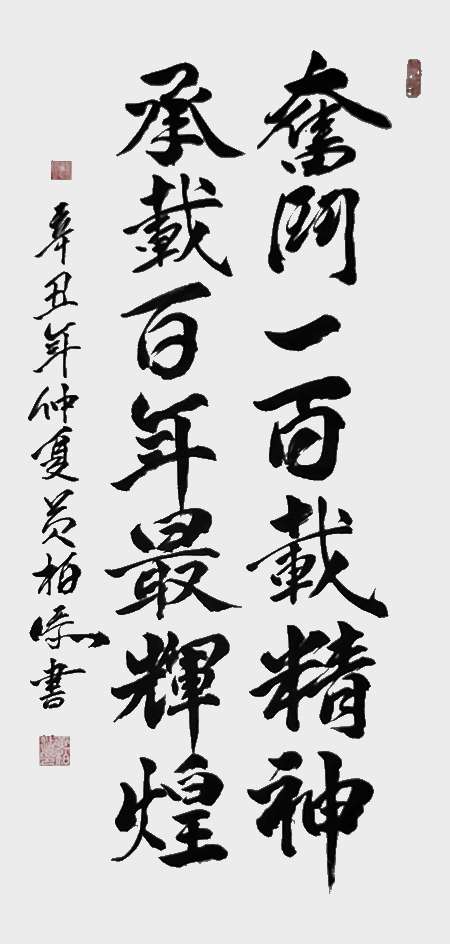 奮鬥一百載精神
承載百年最輝煌
辛丑年仲夏黃柏添書